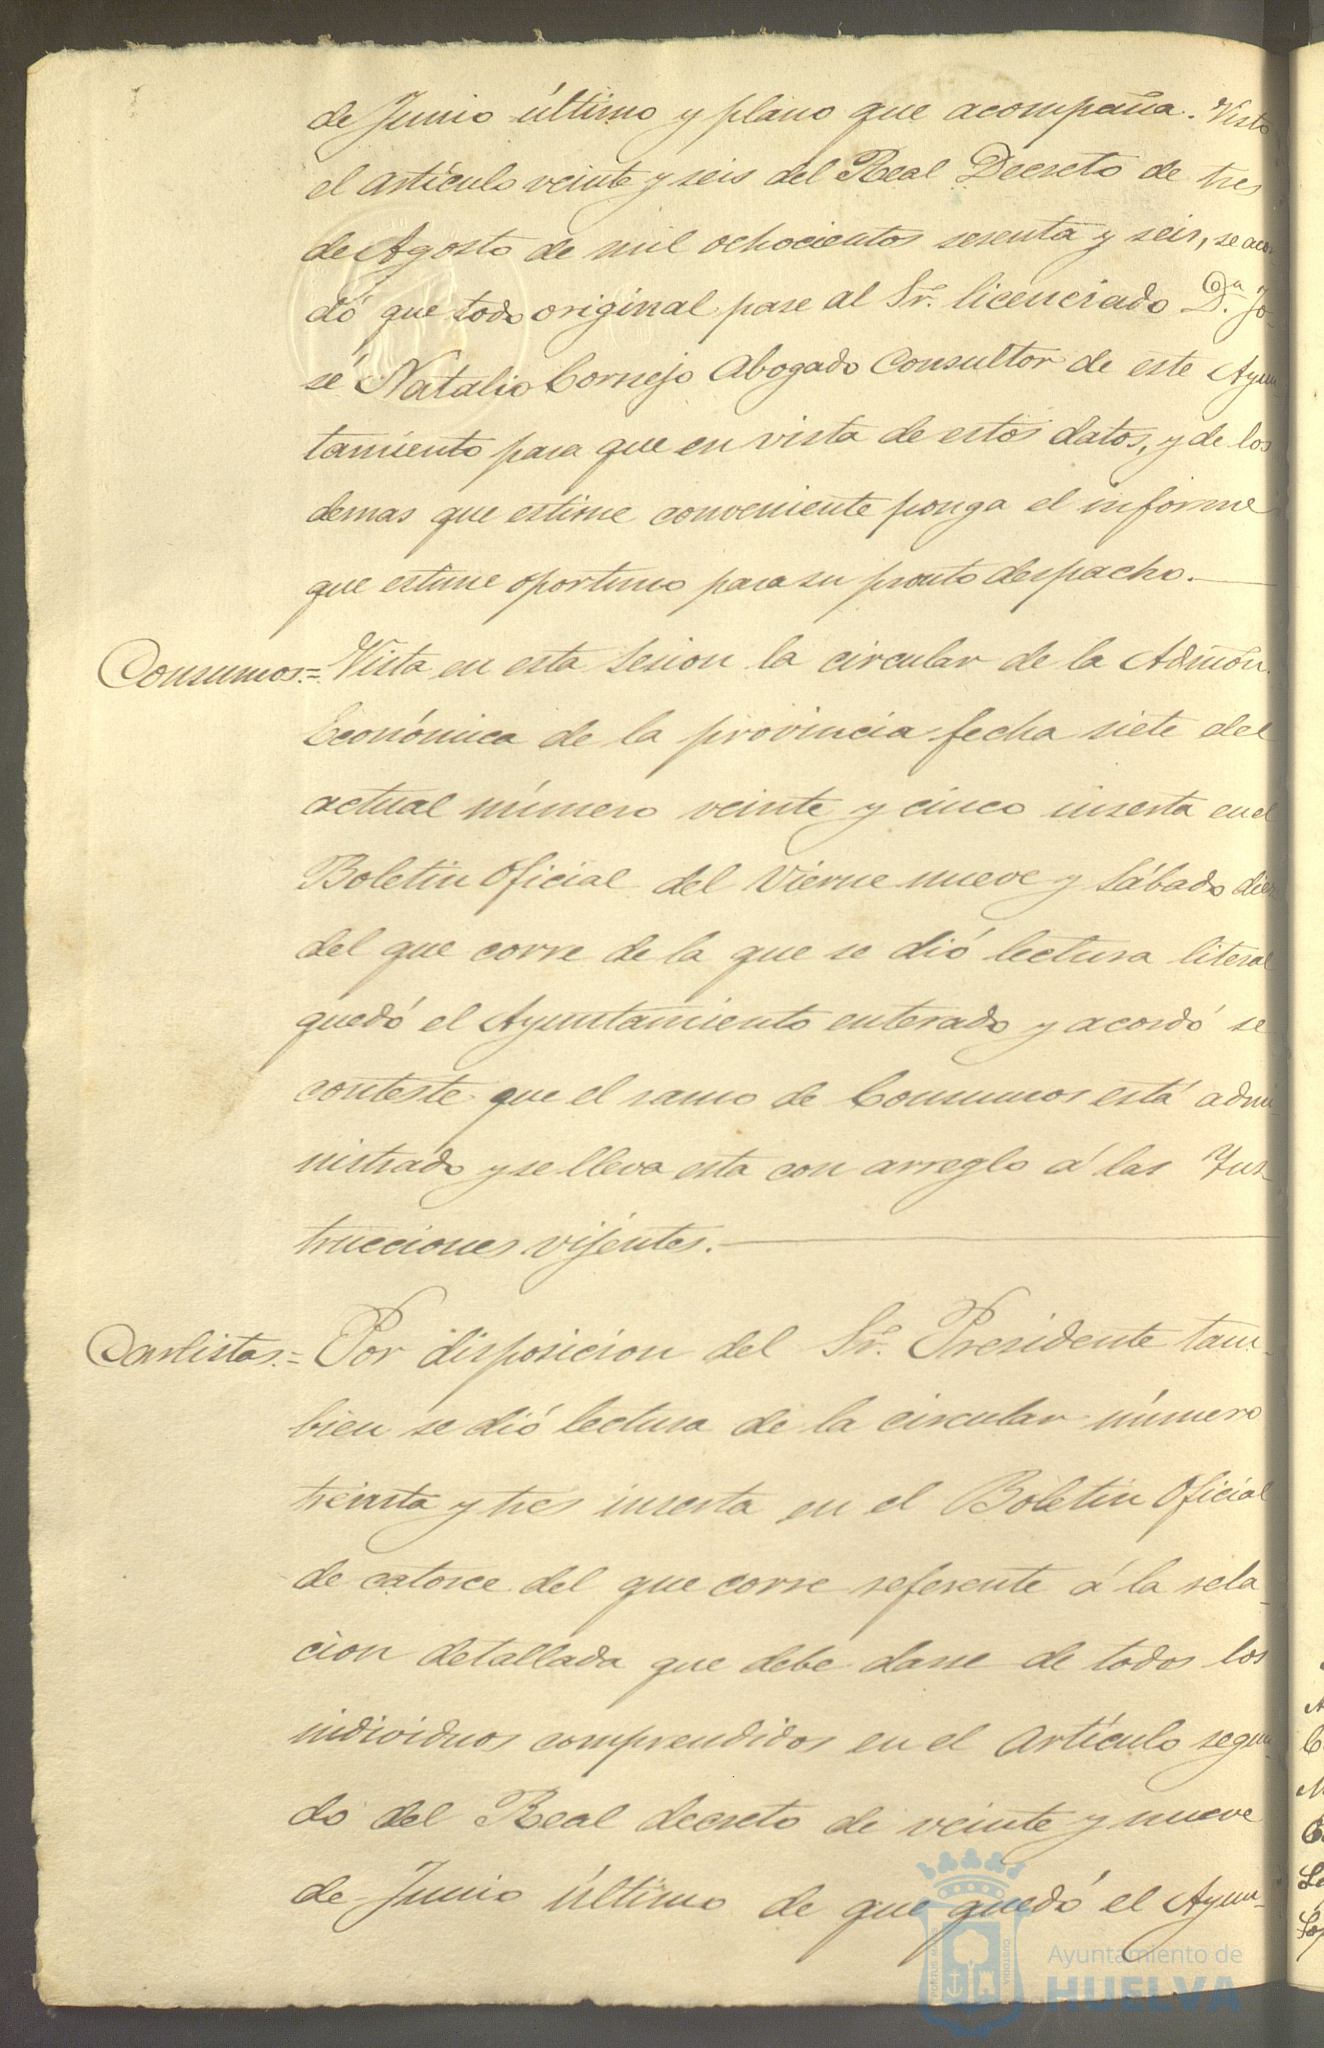 de Junio último y plano que acompaña. Visto
el artículo veinte y seis del Real Decreto de tres
de Agosto de mil ochocientos sesenta y seis, se acor-
dó que todo original pase al Sr. licenciado D.n Jo-
sé Natalio Cornejo Abogado Consultor de este Ayun-
tamiento para que en vista de estos datos, y de los
demas que estime conveniente ponga el informe
que estime oportuno para su pronto despacho.
Consumos.= Vista en esta Sesion la circular de la Admón.
Económica de la provincia fecha siete del
actual número veinte y cinco inserta en el
Boletin Oficial del Vierne nueve y Sábado diez
del que corre de la que se dió lectura literal
quedó el Ayuntamiento enterado y acordó se
conteste que el ramo de Consumos está admi
nistrado y se lleva esta con arreglo á las Yns-
trucciones vijentes.
Carlistas.= Por disposicion del Sr. Presidente tam-
bien se dió lectura de la circular número
treinta y tres inserta en el Boletin Oficial
de catorce del que corre referente á la rela-
cion detallada que debe darse de todos los
individuos comprendidos en el Artículo segun-
do del Real decreto de veinte y nueve
de Junio último de que quedó el Ayun-
Ayuntamiento de
HUELVA